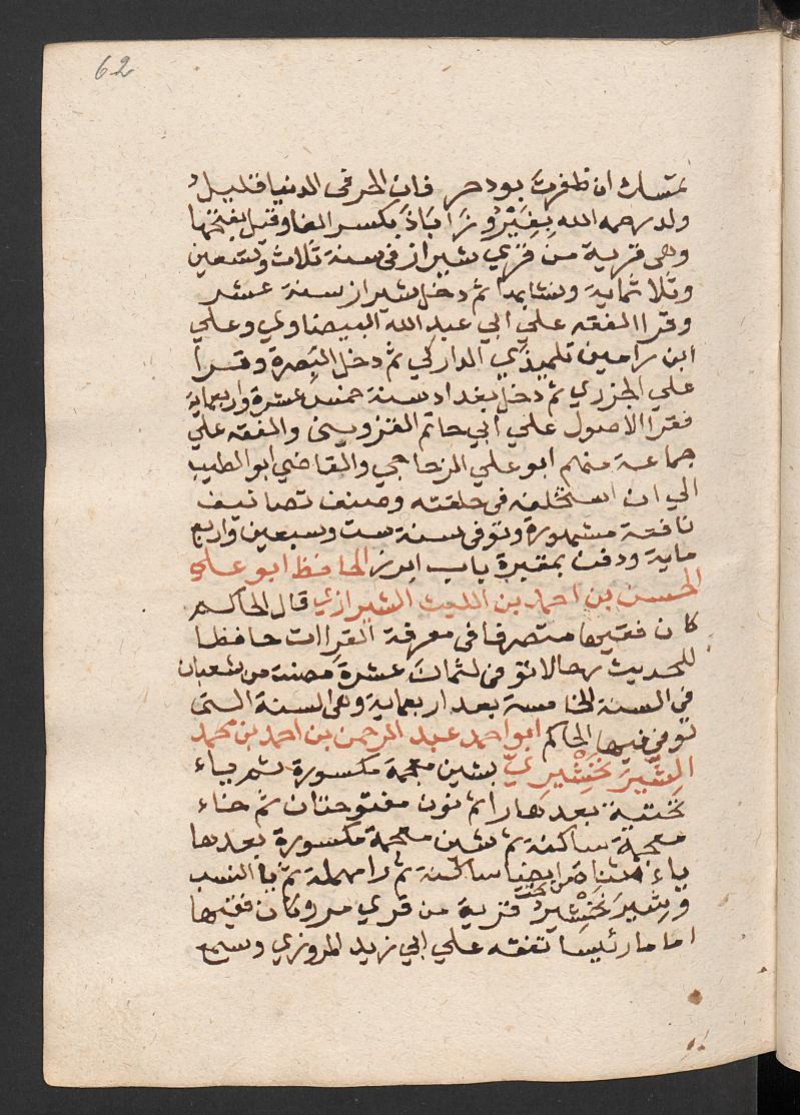 62
تمسك ان ظفرت بود حر فان الحر فى الدنيا قليل
ولد رحمه الله بِفِيْرُوزَابَاذَ بكسر الفا وقيل بفتحها
وهى قرية من قري شيراز فى سنة ثلاث وتسعين
وثلاثماية ونشا بها ثم دخل شيراز سنة عشر
وقرا الفقه علي ابي عبد الله البيضاوي وعلي
ابن رامين تلميذي الداركي ثم دخل البصرة وقرا
علي الجزري ثم دخل بغداد سنة خمس عشرة واربعماية
فقرا الاصول علي ابي حاتم القزويني والفقه علي
جماعة منهم ابو علي الزجاجي والقاضي ابو الطيب
الي ان استخلفه فى حلقته وصنف تصانيف
نافعة مشهورة وتوفى سنة ست وسبعين واربع
ماية ودفن بمقبرة باب ابرز الحافظ ابو علي
الحسن بن احمد بن الليث الشيرازي قال الحاكم
كان فقيها متصرفا فى معرفة القراات حافظا
للحديث رحالا توفى لثمان عشرة مضت من شعبان
في السنة الخامسة بعد اربعماية وهى السنة التى
توفي فيها الحاكم ابو احمد عبد الرحمن بن احمد بن محمد
الشِّيرَنَخْشِيرِيّ بشين معجمة مكسورة ثم ياء
تحتية بعدها را ثم نون مفتوحتان ثم خاء
معجمة ساكنة ثم شين معجمة مكسورة بعدها
ياء مثناة من تحت ايضا ساكنة ثم را مهملة ثم يا النسب
وشِيرَنَخْشِيرُ قرية من قري مرو وكان فقيها
اماما رئيسا تفقه علي ابي زيد المروزي وسمع